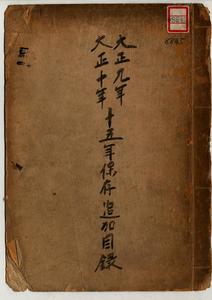 大正九年
大正十年
十五年保存追加目録